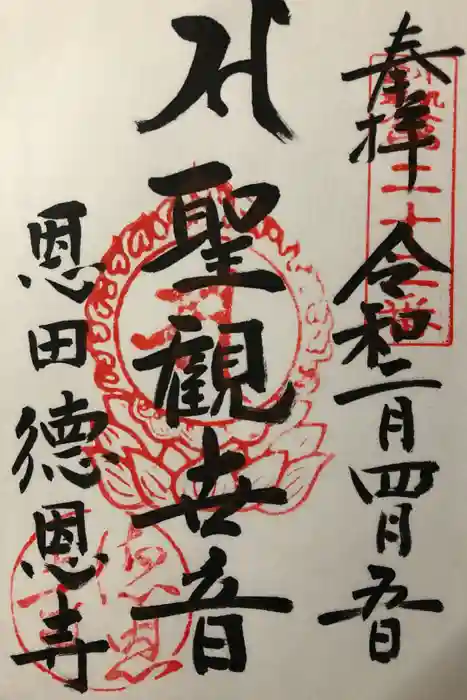 奉拝 令和二月四月五日
聖觀世音
恩田德恩寺